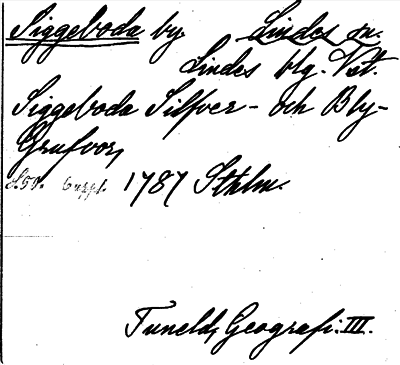 Siggeboda by. Lindes sn.
Lindes blg. Vst.
Siggeboda Silfver- och Bly-
Grufvor,
s. 50. 1787 Sthlm.
Tuneld, Geografi. III.